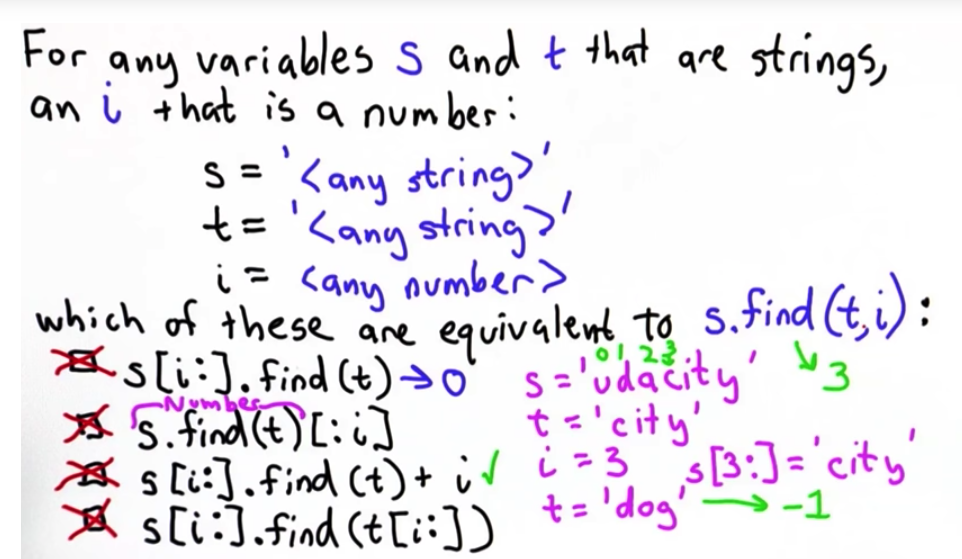 For any variables s and t that are strings,
an i that is a number:
s = '<any string>'
t = '<any string>'
i = <any number>
which of these are equivalent to s.find(t,i):
s[i:].find(t)→0
Number
s.find(t)[:i]
s[i:].find(t)+i✓
s[i:].find(t[i:])
0 1 2 3
s='udacity' ↘3
t='city'
i=3 s[3:]='city'
t='dog'→-1